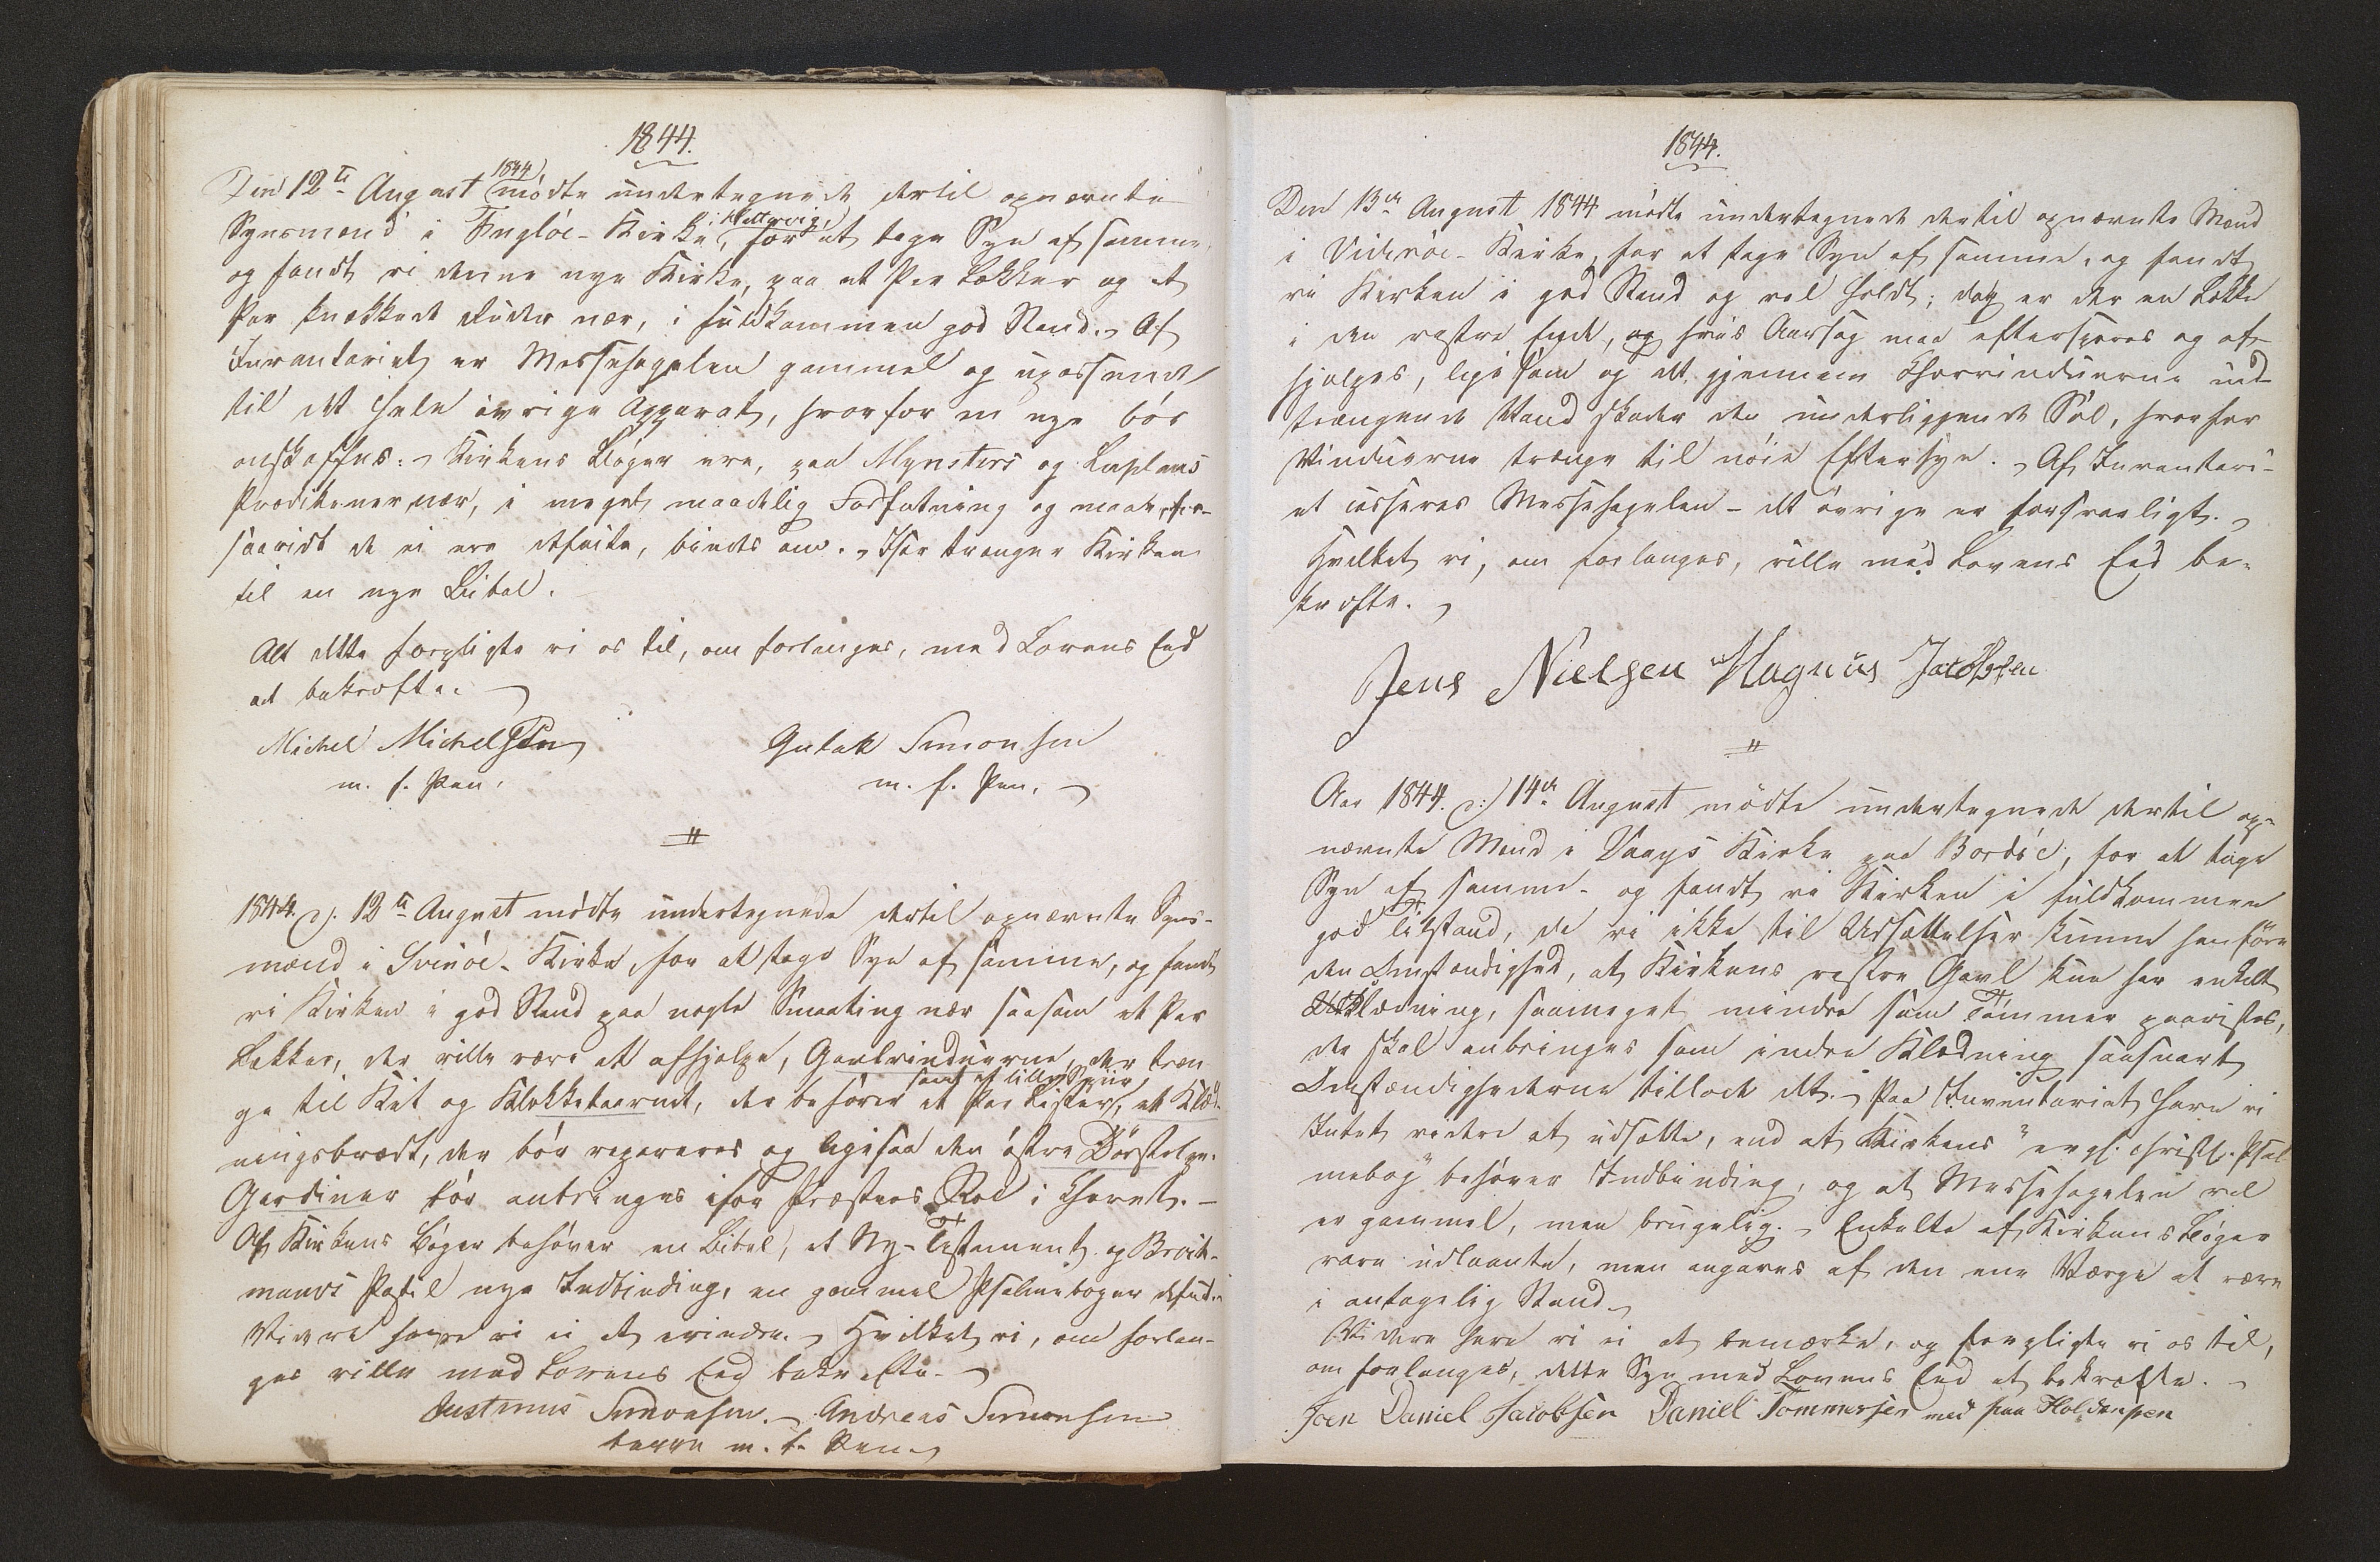 1844.
Den 12te August 1844 mödte undertegnede dertil opnævnte
Synsmænd i Fuglöe-Kirke, i Hattervig, for at tage Syn af samme,
og fandt vi denne nye Kirke, paa et Par Lækker og et
Par knækkede Ruder nær, i fuldkommen god Stand. Af
Inventariet er Messehagelen gammel og upassende
til det hele övrige Apparat, hvorfor en nye bör
anskaffes. Kirkens Böger ere, paa Mynsters og
Prædikener nær, i meget maadelig Forfatning og maae, for-
saavidt de ei ere defecte, bindes om. Især trænger Kirken
til en nye Bibel.
Alt dette forpligte vi os til, om forlanges, med Lovens Eed
at bekræfte.
Michel Michelsen Gutak Simonsen
m. f. Pen. m. f. Pen.
1844. d. 12te August mödte undertegnede dertil opnævnte Syns-
mænd i Svinöe-Kirke, for at tage Syn af samme, og fandt
vi Kirken i god Stand paa nogle Smaating nær saasom et Par
Lækker, der ville være at afhjælpe, Gavlvinduerne, der træn
ge til Kit og Klokketaarnet, der behöver et Par Lister, samt et lille Spiir, et Klæd-
ningsbrædt, der bör repareres og ligesaa den östre Dörstolpe.
Gardiner bör anbringes ifor Præstens Stol i Choret.
Af Kirkens Böger behöver en Bibel, et Ny-Testament og Broch-
mands Postil nye Indbinding, en gammel Psalmebog er defect.
Videre have vi ei at erindre. Hvilket vi, om forlan-
ges ville med Lovens Eed bekræfte.
Justinus Simonsen. Andreas Simonsen
begge m. f. Pen.
1844.
Den 13de August 1844 mödte undertegnede dertil opnævnte Mænd
i Videröe-Kirke, for at tage Syn af samme, og fandt
vi Kirken i god Stand og vel holdt; dog er der en Lække
i den vestre Ende, og hvis Aarsag maa efterspores og af-
hjælpes, ligesom og det gjennem Chorvinduerne ind-
trængende Vand skader den underliggende Syl, hvorfor
Vinduerne trænge til nöie Eftersyn. Af Inventari-
et casseres Messehagelen - det övrige er forsvarligt.
Hvilket vi, om forlanges, ville med Lovens Eed be-
kræfte.
Jens Nielsen Magnus Jacobsen
Aar 1844. d: 14de August mödte undertegnede dertil op-
nævnte Mænd i Vaags Kirke paa Bordöe, for at tage
Syn af samme - og fandt vi Kirken i fuldkommen
god Tilstand, da vi ikke til Udsættelser kunne henföre
den Omstændighed, at Kirkens vestre Gavl kun har enkelt
Klædning, saameget mindre som Tömmer paavistes,
der skal anbringes som indre Klædning saasnart
Omstændighederne tillade det. Paa Inventariet have vi
Intet videre at udsætte, end at Kirkens "evgl. christl. Psal
mebog" behöver Indbinding, og at Messehagelen vel
er gammel, men brugelig. Enkelte af Kirkens Böger
vare udlaante, men angaves af den ene Værge at være
i antagelig Stand.
Videre have vi ei at bemærke, og forpligte vi os til,
om forlanges, dette Syn med Lovens Eed at bekræfte.
Joen Daniel Jacobsen Daniel Tommersen med paa Holden pen